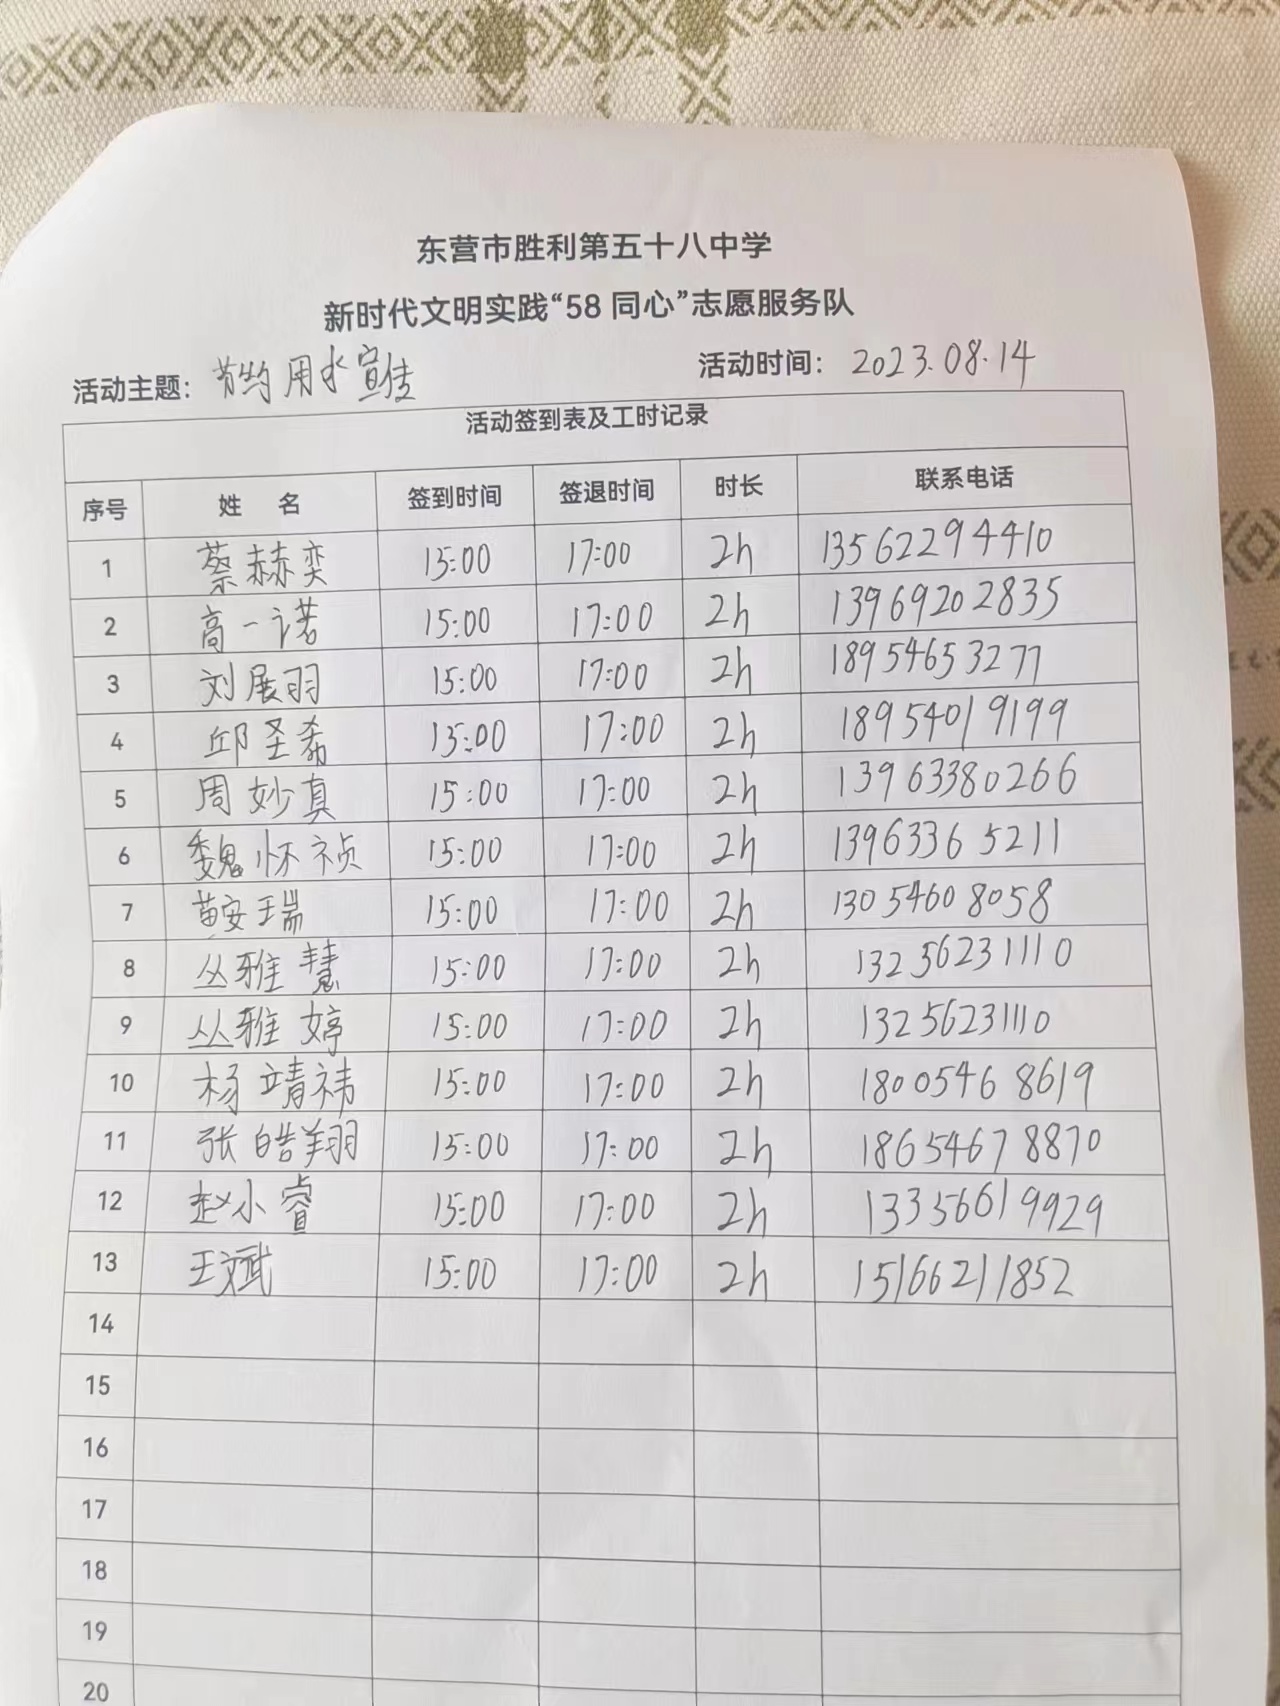 东营市胜利第五十八中学
新时代文明实践“58 同心”志愿服务队
活动主题：节约用水宣传 活动时间：2023.08.14
活动签到表及工时记录
序号 姓 名 签到时间 签退时间 时长 联系电话
1 蔡赫奕 15:00 17:00 2h 13562294410
2 高一诺 15:00 17:00 2h 13969202835
3 刘展羽 15:00 17:00 2h 18954653277
4 邱圣 15:00 17:00 2h 18954019199
5 周妙真 15:00 17:00 2h 13963380266
6 魏怀祯 15:00 17:00 2h 13963365211
7 苗安瑞 15:00 17:00 2h 13054608058
8 丛雅慧 15:00 17:00 2h 13256231110
9 丛雅婷 15:00 17:00 2h 13256231110
10 杨靖祎 15:00 17:00 2h 18005468619
11 张皓翔 15:00 17:00 2h 18654678870
12 赵小睿 15:00 17:00 2h 13356619929
13 王斌 15:00 17:00 2h 15166211852
14
15
16
17
18
19
20